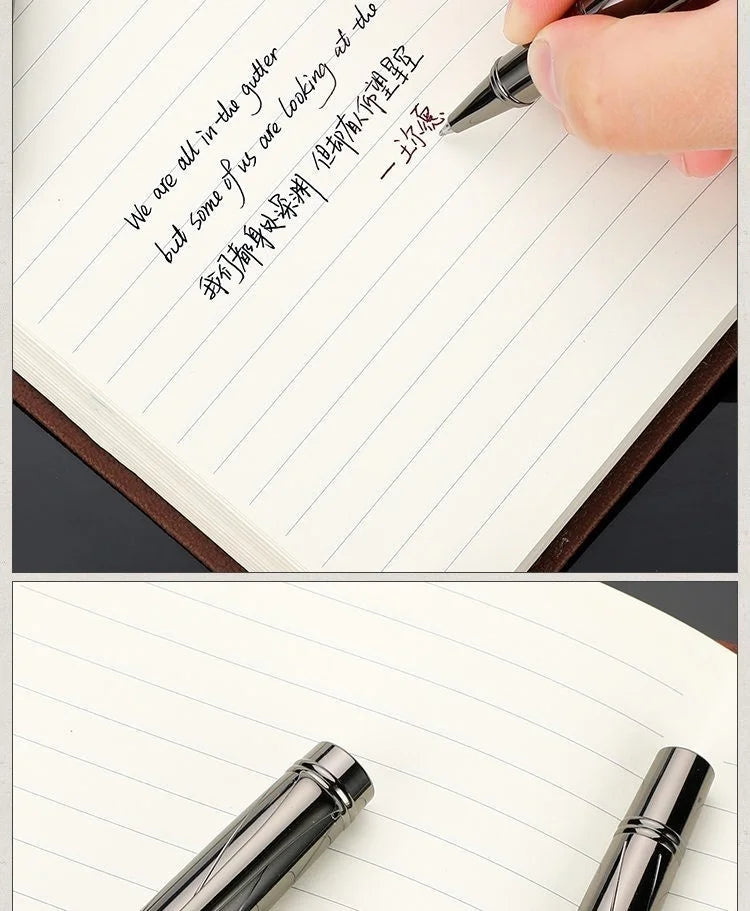 We are all in the gutter
but some of us are looking at the
我们都身处深渊 但却有人仰望星空